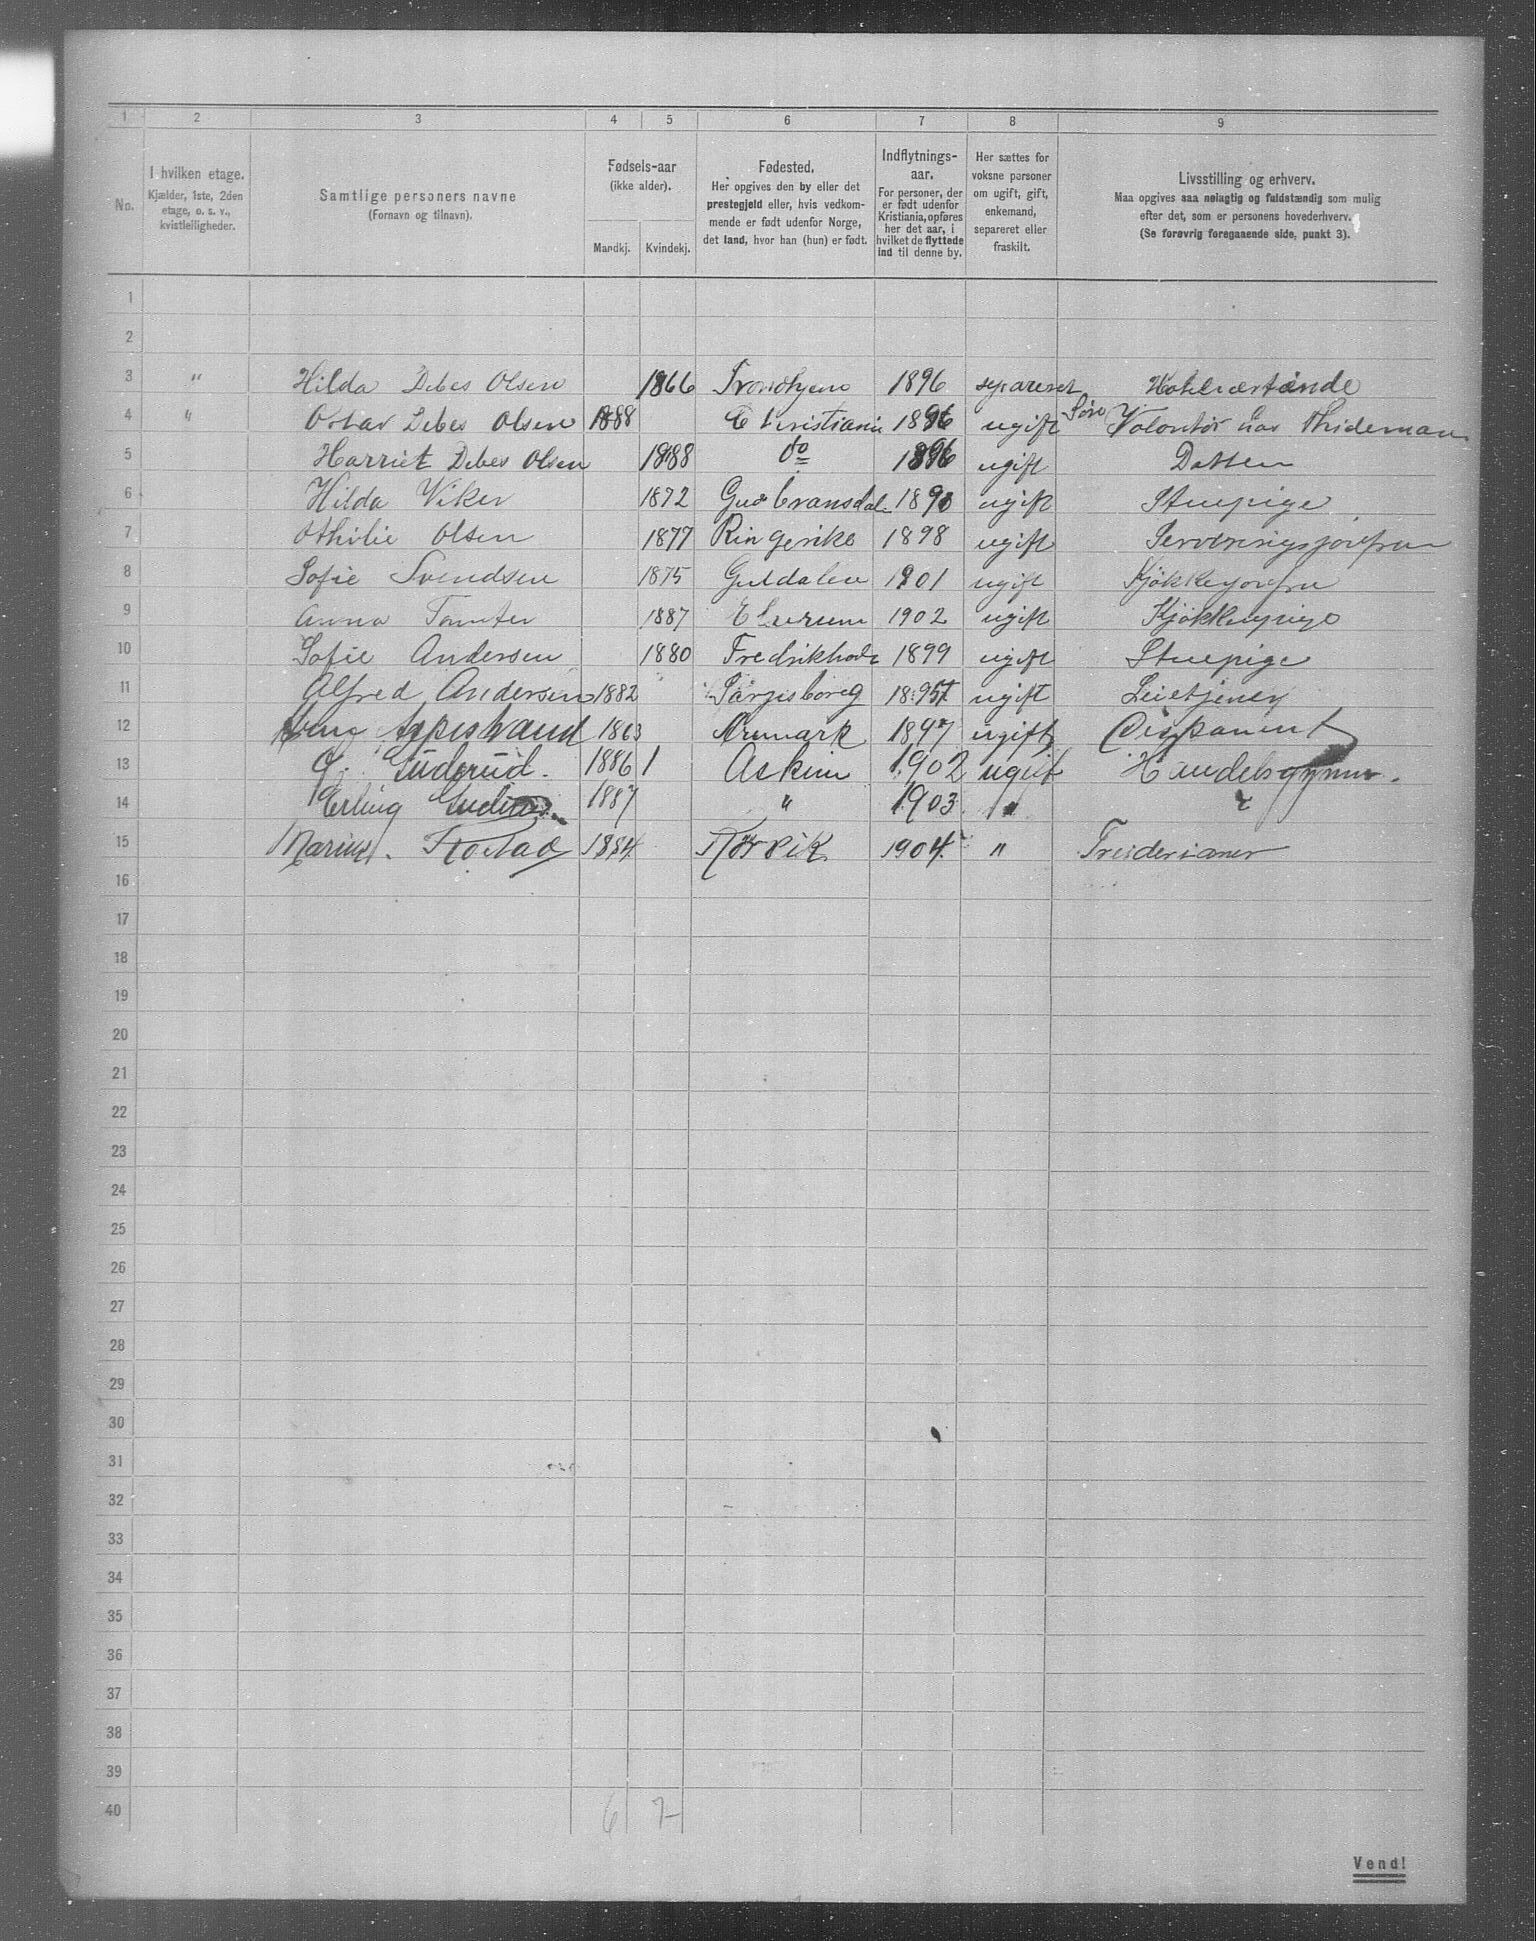 1 2 3 4 5 6 7 8 9
No.
I hvilken etage.
Kjælder, 1ste, 2den
etage, o. s. v.,
kvistleiligheder.
Samtlige personers navne
(Fornavn og tilnavn).
Fødsels-aar
(ikke alder).
Mandkj. Kvindekj.
Fødested.
Her opgives den by eller det
prestegjeld eller, hvis vedkom-
mende er født udenfor Norge,
det land, hvor han (hun) er født.
Indflytnings-
aar.
For personer, der
er født udenfor
Kristiania, opføres
her det aar, i
hvilket de flyttede
ind til denne by.
Her sættes for
voksne personer
om ugift, gift,
enkemand,
separeret eller
fraskilt.
Livsstilling og erhverv.
Maa opgives saa nøiagtig og fuldstændig som mulig
efter det, som er personens hovederhverv.
(Se forøvrig foregaaende side, punkt 3).
1
2
3 " Hilda Debes Olsen 1866 Trondhjem 1896 separeret Hotelværtinde
4 " Debes Olsen 1888 Christiania 1896 ugift Søn Volontør hos Thideman
5 Harriet Debes Olsen 1888 do 1896 ugift Datter
6 Hilda Viker 1872 Gudbransdal 1890 ugift Stuepige
7 Othilie Olsen 1877 Ringerike 1898 ugift Serveringsjomfru
8 Sofie Svendsen 1875 Guldalen 1901 ugift Kjøkkenjomfru
9 Anna Tomter 1887 Elverum 1902 ugift Kjøkkenpige
10 Sofie Andersen 1880 Fredrikhald 1899 ugift Stuepige
11 Alfred Andersen 1882 Sarpsborg 1895 ugift Leietjener
12 1863 Aremark 1897 ugift Disponent
13 Guderud. 1886 1 Askim 1902 ugift Handelsgymn.
14 Erling 1887 " 1903 "
15 Marius 1884 1904 "
16
17
18
19
20
21
22
23
24
25
26
27
28
29
30
31
32
33
34
35
36
37
38
39
40 6 7
Vend!